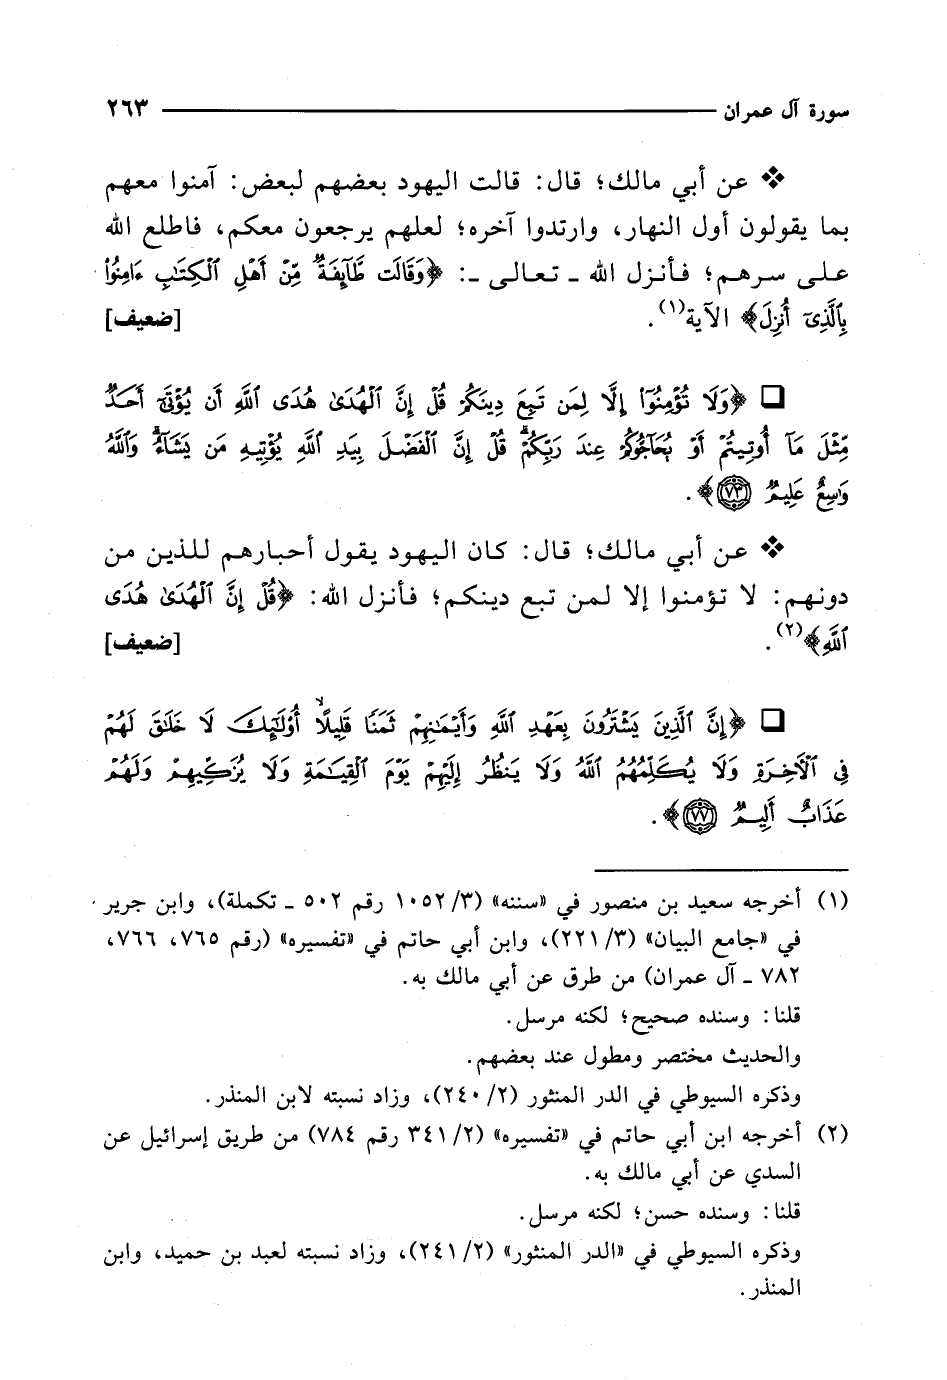 سورة آل عمران ٢٦٣
❖ عن أبي مالك؛ قال: قالت اليهود بعضهم لبعض: آمنوا معهم
بما يقولون أول النهار، وارتدوا آخره؛ لعلهم يرجعون معكم، فاطلع الله
على سرهم؛ فأنزل الله ـ تعالى ـ: ﴿وَقَالَت طَّآئِفَةٌ مِّنْ أَهْلِ ٱلْكِتَٰبِ ءَامِنُوا۟
بِٱلَّذِىٓ أُنزِلَ﴾ الآية(١). [ضعيف]
❑ ﴿وَلَا تُؤْمِنُوٓا۟ إِلَّا لِمَن تَبِعَ دِينَكُمْ قُلْ إِنَّ ٱلْهُدَىٰ هُدَى ٱللَّهِ أَن يُؤْتَىٰٓ أَحَدٌ
مِّثْلَ مَآ أُوتِيتُمْ أَوْ يُحَآجُّوكُمْ عِندَ رَبِّكُمْ ۗ قُلْ إِنَّ ٱلْفَضْلَ بِيَدِ ٱللَّهِ يُؤْتِيهِ مَن يَشَآءُ ۗ وَٱللَّهُ
وَٰسِعٌ عَلِيمٌ ٧٣﴾.
❖ عن أبي مالك؛ قال: كان اليهود يقول أحبارهم للذين من
دونهم: لا تؤمنوا إلا لمن تبع دينكم؛ فأنزل الله: ﴿قُلْ إِنَّ ٱلْهُدَىٰ هُدَى
ٱللَّهِ﴾(٢). [ضعيف]
❑ ﴿إِنَّ ٱلَّذِينَ يَشْتَرُونَ بِعَهْدِ ٱللَّهِ وَأَيْمَٰنِهِمْ ثَمَنًا قَلِيلًا ۙ أُو۟لَٰٓئِكَ لَا خَلَٰقَ لَهُمْ
فِى ٱلْأَخِرَةِ وَلَا يُكَلِّمُهُمُ ٱللَّهُ وَلَا يَنظُرُ إِلَيْهِمْ يَوْمَ ٱلْقِيَٰمَةِ وَلَا يُزَكِّيهِمْ وَلَهُمْ
عَذَابٌ أَلِيمٌ ٧٧﴾.
(١) أخرجه سعيد بن منصور في «سننه» (٣/ ١٠٥٢ رقم ٥٠٢ ـ تكملة)، وابن جرير
في «جامع البيان» (٣/ ٢٢١)، وابن أبي حاتم في «تفسيره» (رقم ٧٦٥، ٧٦٦،
٧٨٢ ـ آل عمران) من طرق عن أبي مالك به.
قلنا: وسنده صحيح؛ لكنه مرسل.
والحديث مختصر ومطول عند بعضهم.
وذكره السيوطي في الدر المنثور (٢/ ٢٤٠)، وزاد نسبته لابن المنذر.
(٢) أخرجه ابن أبي حاتم في «تفسيره» (٢/ ٣٤١ رقم ٧٨٤) من طريق إسرائيل عن
السدي عن أبي مالك به.
قلنا: وسنده حسن؛ لكنه مرسل.
وذكره السيوطي في «الدر المنثور» (٢/ ٢٤١)، وزاد نسبته لعبد بن حميد، وابن
المنذر.